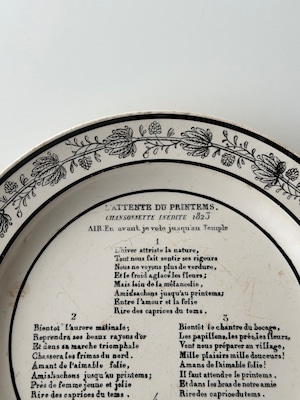 L'ATTENTE DU PRINTEMS.
CHANSONNETTE INEDITE 1823
AIR. En avant, je vole jusqu'au Temple
1
L'hiver attriste la nature,
Tout nous fait sentir ses rigeurs
Nous ne voyons plus de verdure,
Et le froid aglacé les fleurs;
Mais loin de la mélancolie,
Amis sachons jusqu'au printems;
Entre l'amour et la folie
Rire des caprices du tems.
2
Bientôt l'aurore matinale;
Reprendra ses beaux rayons d'or
Et dans sa marche triomphale
Chassera les frimas du nord.
Amant de l'aimable folie,
Amis sachons jusqu'au printems;
Près de femme jeune et jolie
Rire des caprices du tems.
3
Bientôt le chantre du bocage,
Les papillons, les près, les fleurs,
Vont nous préparer au village,
Mille plaisirs mille douceurs!
Amans de l'aimable folie!
Il faut attendre le printems.
Et dans les bras de notre amie
Rire des caprices du tems.